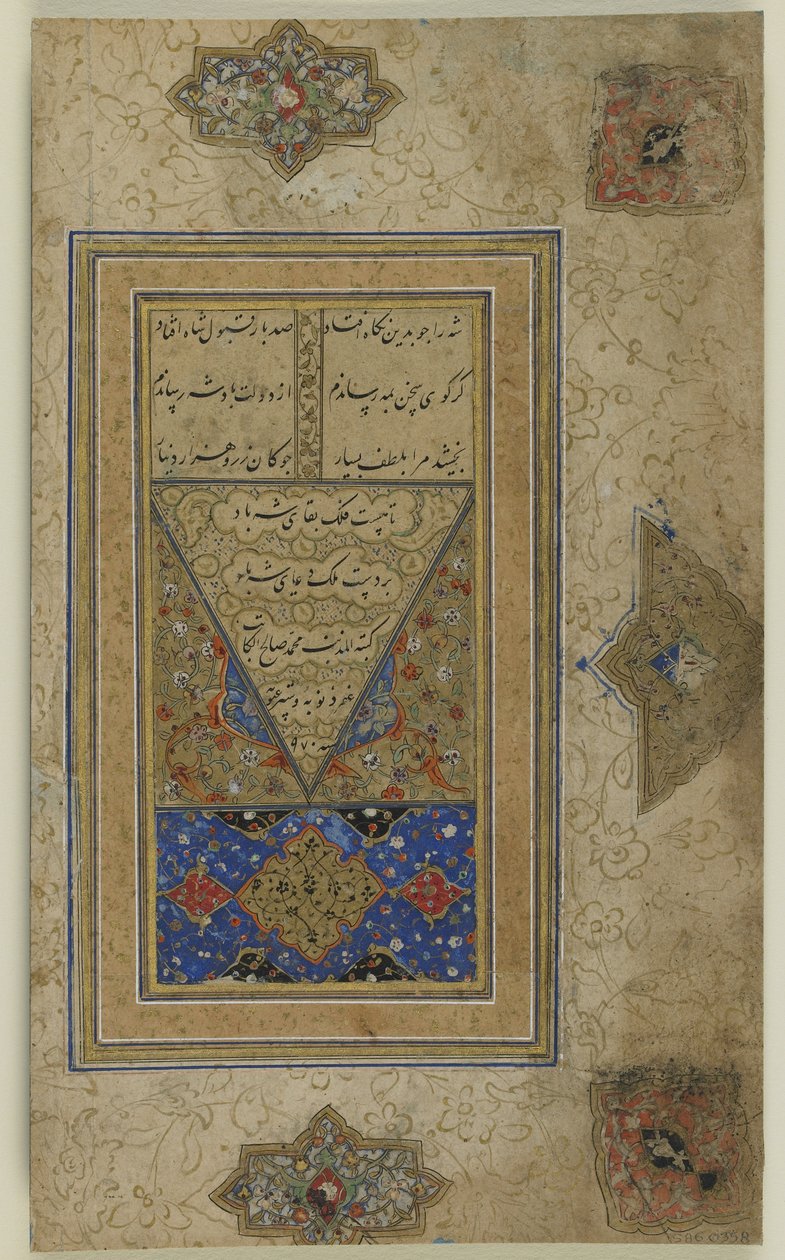 شه را چو بدین نگاه افتاد صد بار قبول شاه افتاد
کر کوی سخن بمه رساندم از دولت بادشه رساندم
بخشید مرا بلطف بسیار جو کان زر و هزار دینار
تا هست فلک بقای شه باد
بر دست ملک دعای شه باد
کتبه المذنب محمد صالح الکاتب
غفر ذنوبه وستر عیوبه
سنه ۹۷۰
1986.0358